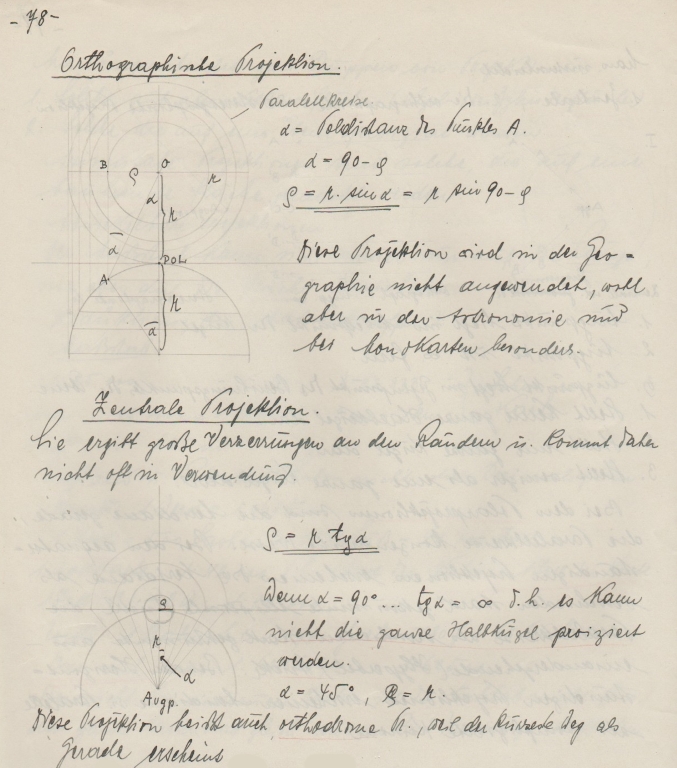 -78-
Orthographische Projektion.
Parallelkreise
α = Poldistanz des Punktes A.
α = 90-φ
ρ = r. sin α = r sin 90-φ
B
ρ
O
r
α
r
ᾱ
POL
A
r
ᾱ
Diese Projektion wird in der Geo=
graphie nicht angewendet, wohl
aber in der Astronomie und
bei Mondkarten besonders.
Zentrale Projektion.
Sie ergibt große Verzerrungen an den Rändern u. kommt daher
nicht oft in Verwendung.
ρ = r tg α
Wenn α = 90° ... tg α = ∞ d.h. es kann
nicht die ganze Halbkugel proiziert
werden.
α = 45°, ρ = r.
r
α
Augp.
Diese Projektion heißt auch orthodrome P., weil der kürzeste Weg als
Gerade erscheint